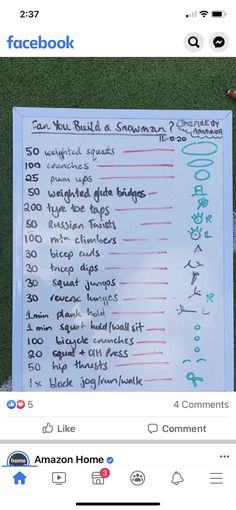 2:37
facebook
Can You Build a Snowman?
INSPIRE BY
AMANDA
16·12·20
50 weighted squats
100 crunches
25 push ups
50 weighted glute bridges
200 tyre toe taps
50 Russian Twists
100 mtn climbers
30 bicep curls
30 tricep dips
30 squat jumps
30 reverse lunges
1 min plank hold
1 min squat hold/wall sit
100 bicycle crunches
20 squat + O/H Press
50 hip thrusts
1 x block jog/run/walk
R
L
R
L
5
4 Comments
Like
Comment
home
Amazon Home
3